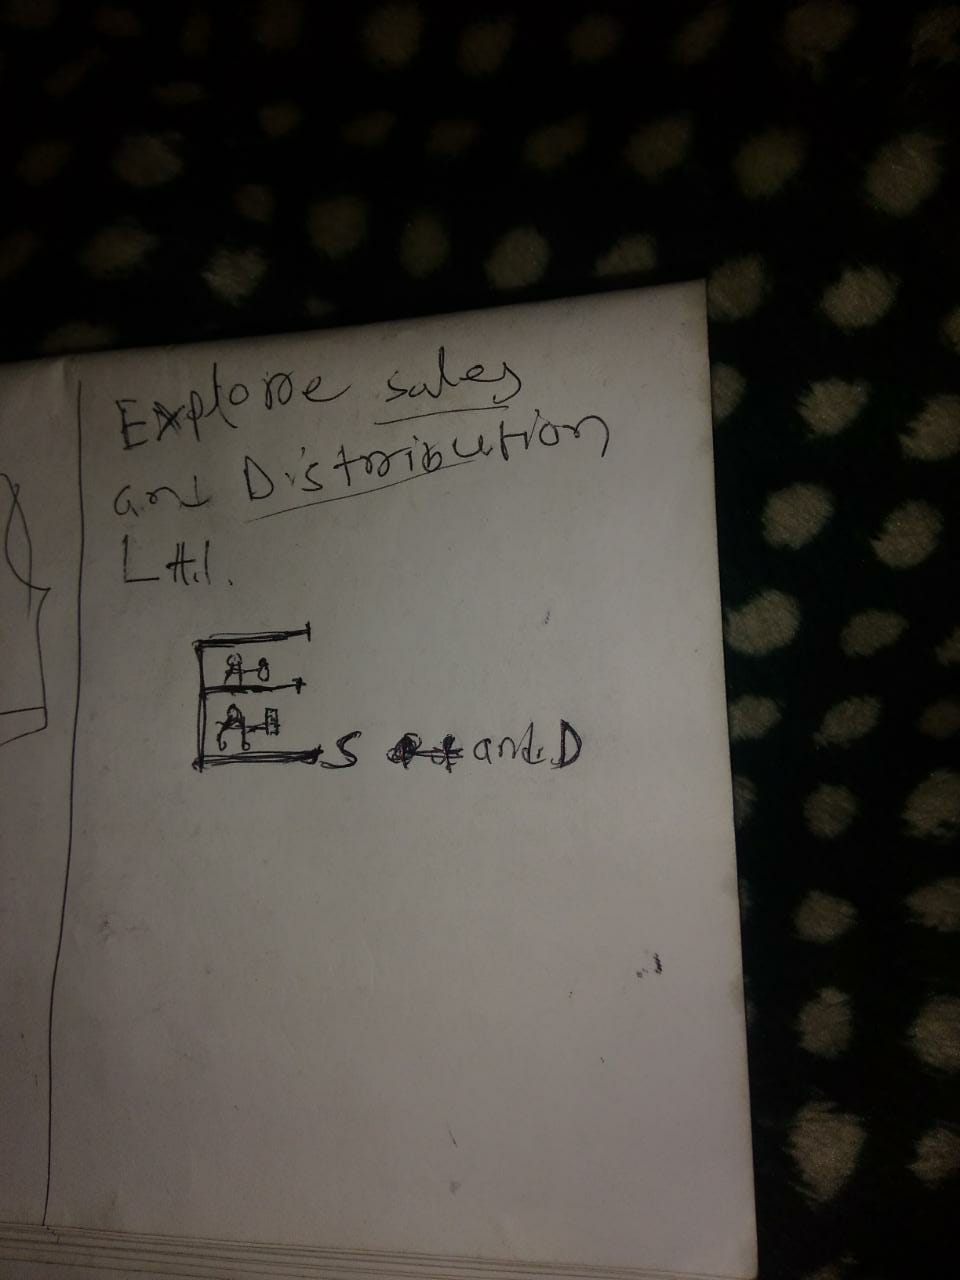 Explore sales
and Distribution
Ltd.
E S and D